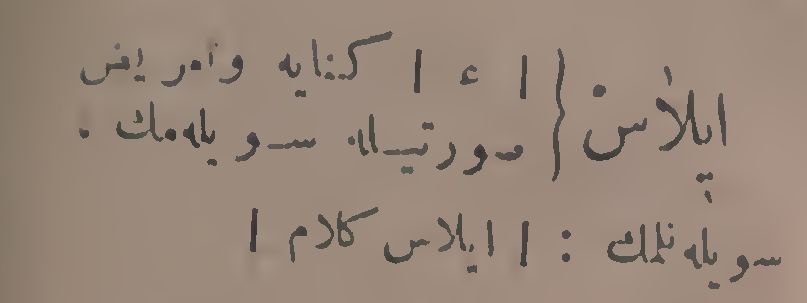 ايلاس { | ء | كنايه وتعريض
صورتيله سويله‌مك .
سويله نلمك : | ايلاس كلام |